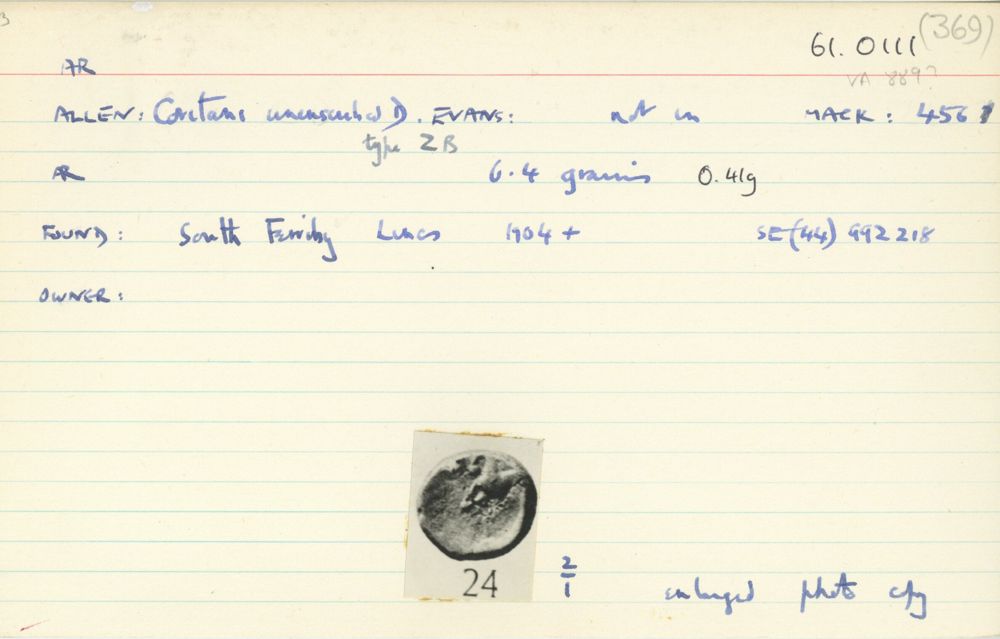 (369)
61.0111
AR
VA 889?
ALLEN: Coritani uninscribed D. EVANS: not in MACK: 456
type 2B
AR 6.4 grains 0.41g
FOUND: South Ferriby Lincs 1904 + SE (44) 992218
OWNER:
24 2/1 enlarged photo copy